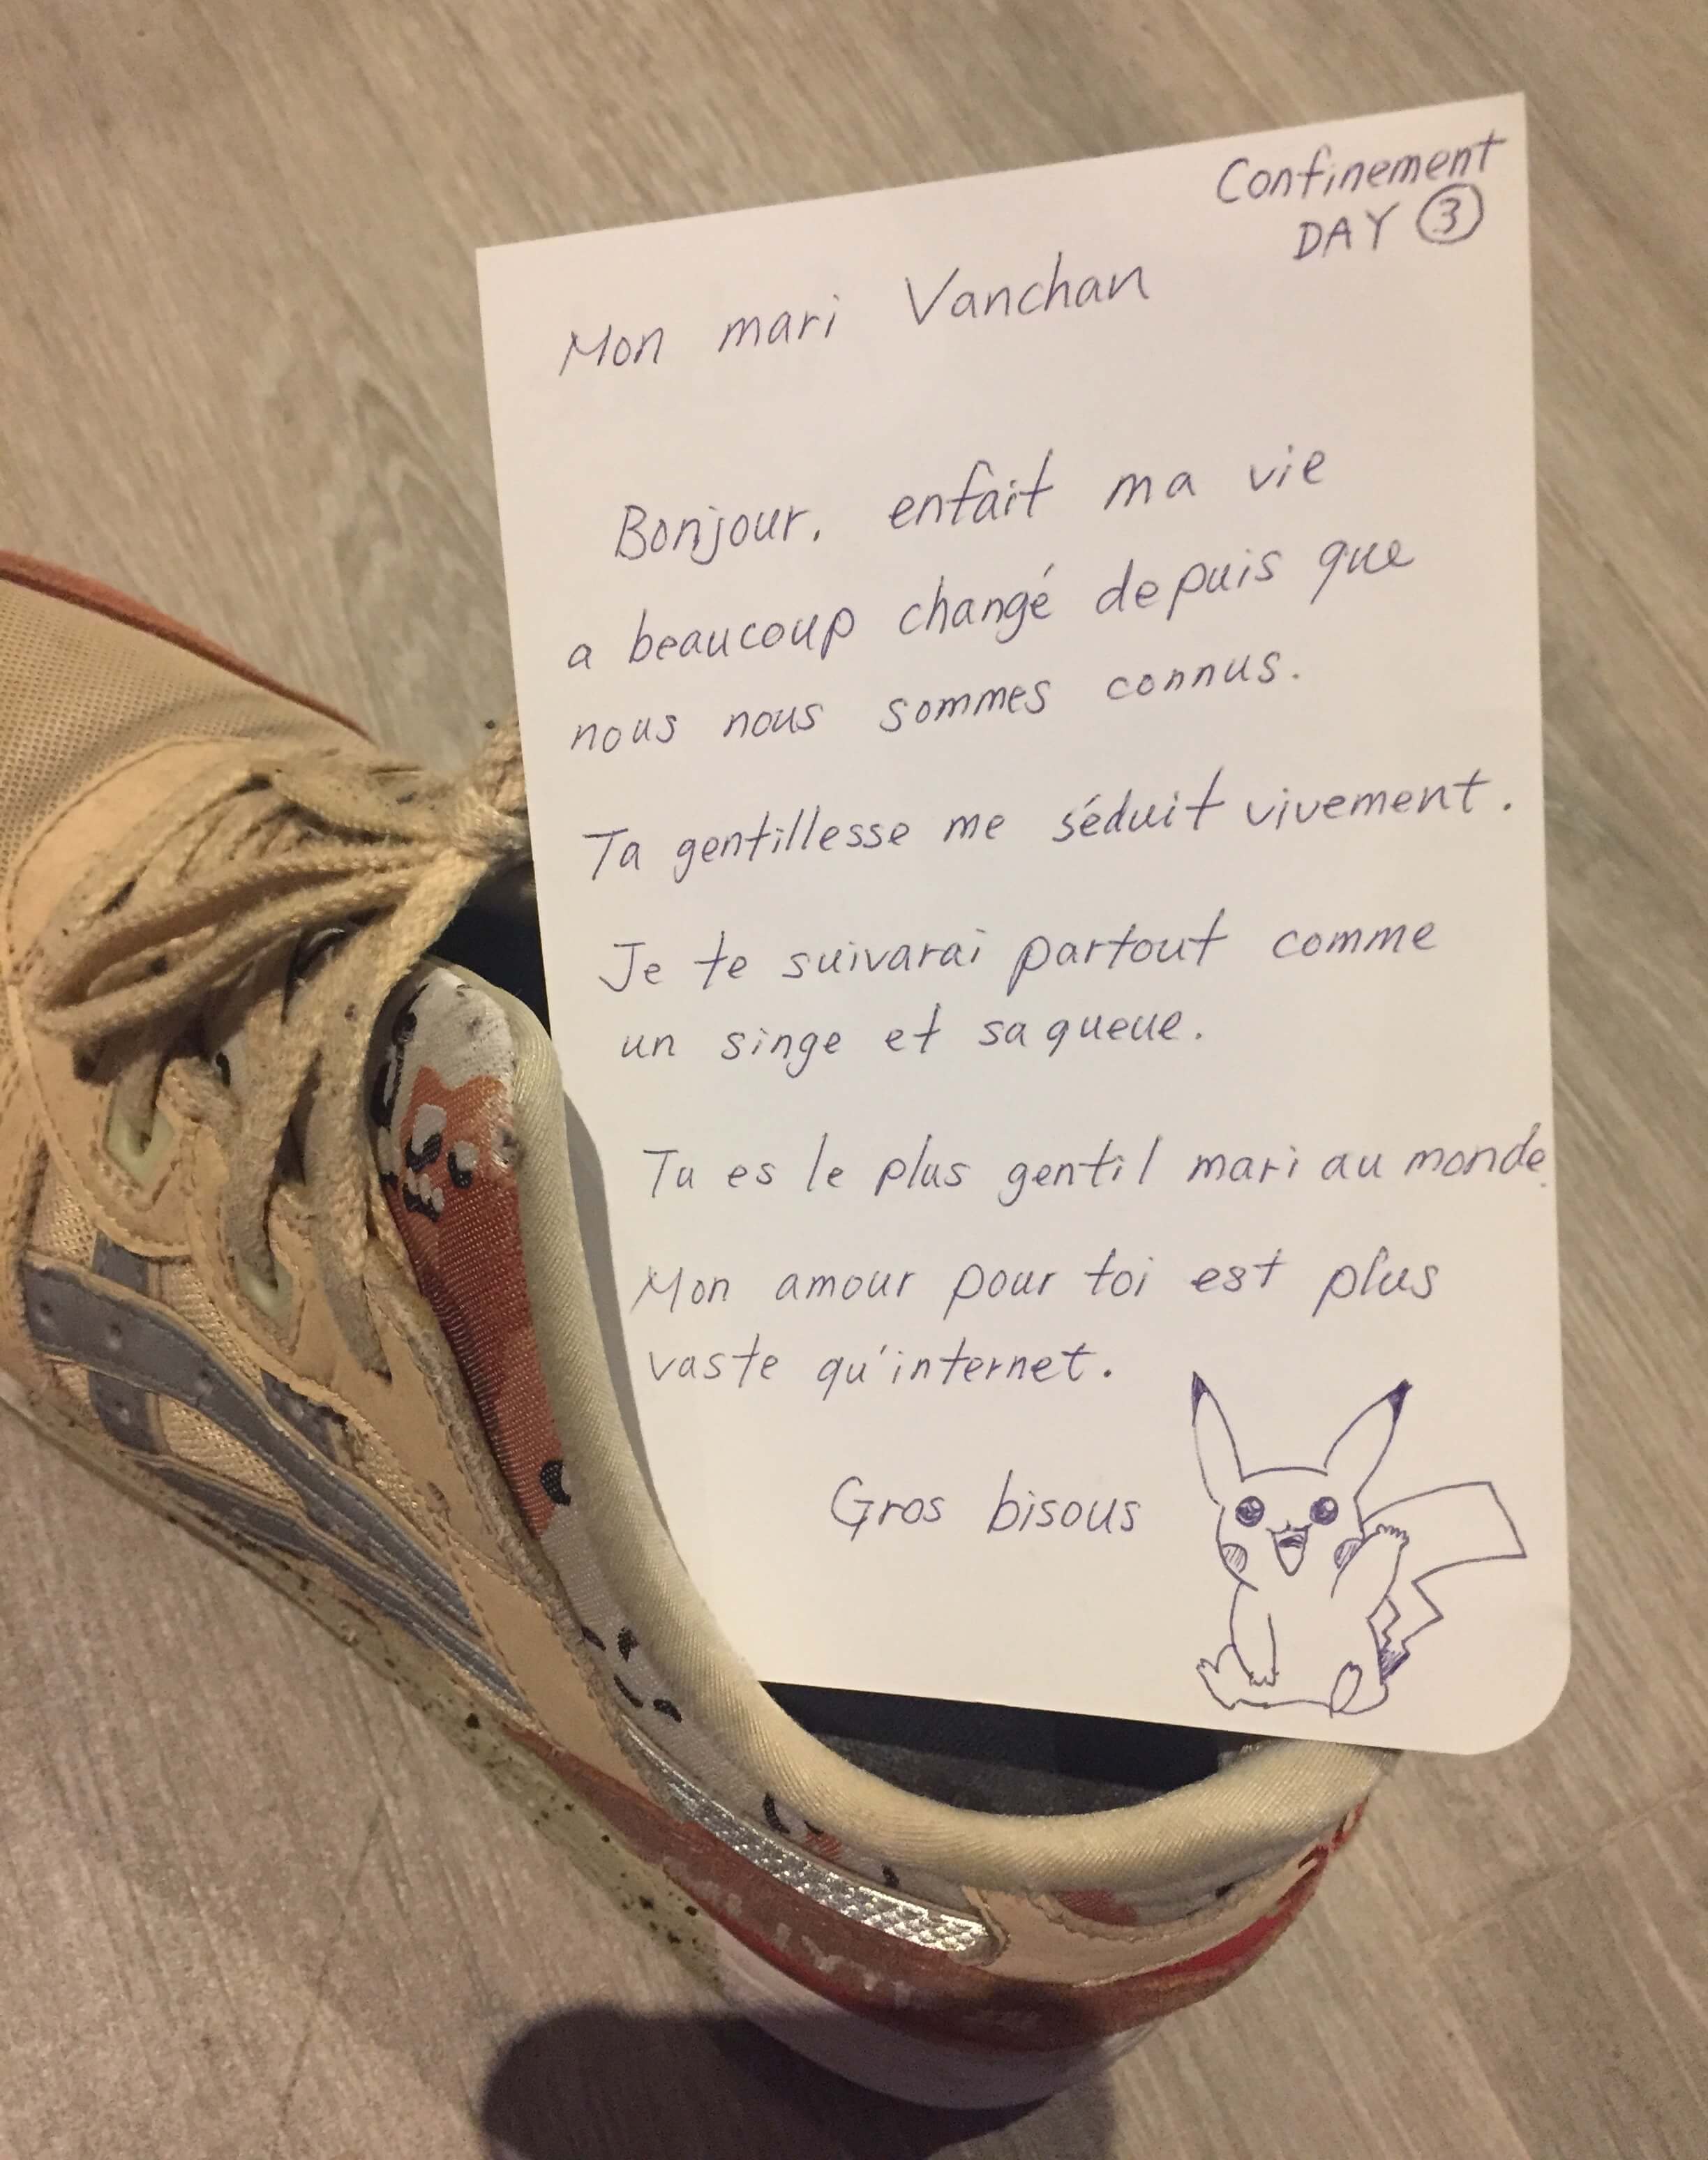 Confinement
DAY ③
Mon mari Vanchan
Bonjour, enfait ma vie
a beaucoup changé depuis que
nous nous sommes connus.
Ta gentillesse me séduit vivement.
Je te suivarai partout comme
un singe et sa queue.
Tu es le plus gentil mari au monde.
Mon amour pour toi est plus
vaste qu'internet.
Gros bisous